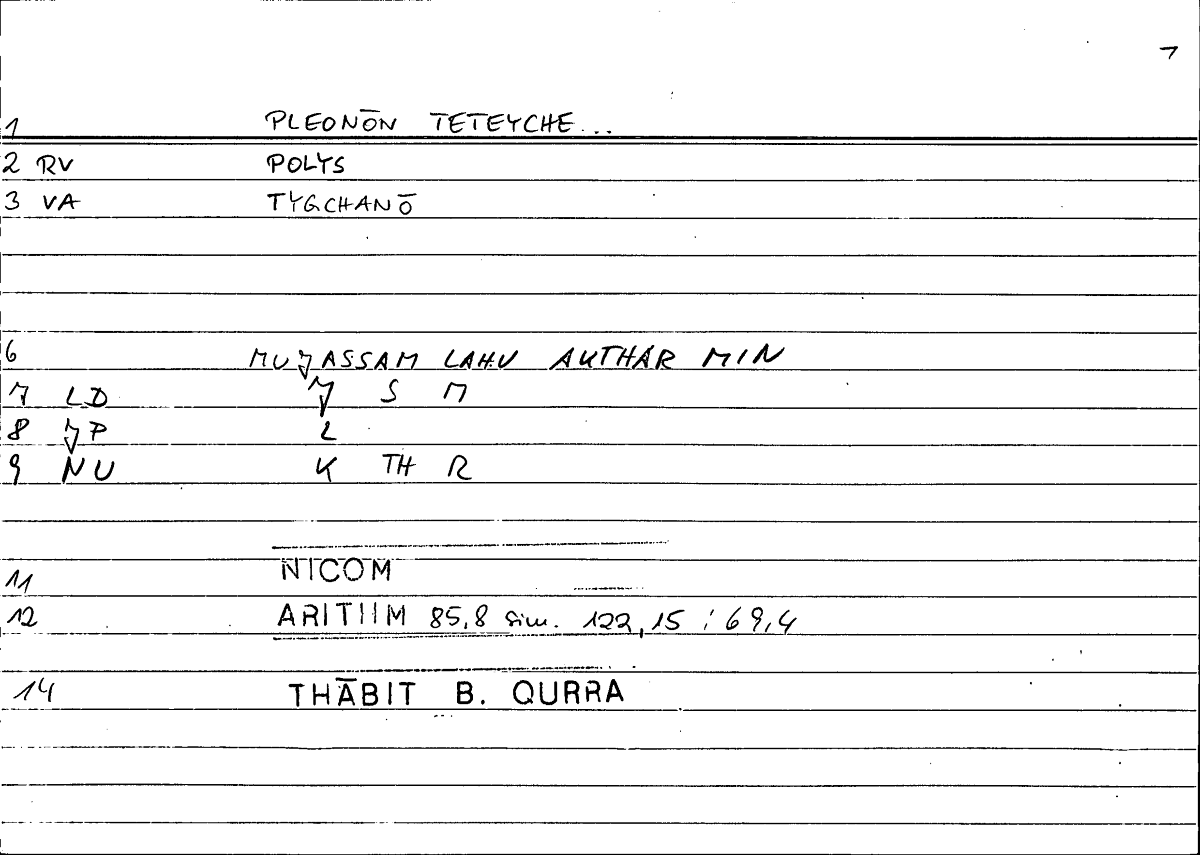 7
1 PLEONŌN TETEYCHE...
2 RV POLYS
3 VA TYGCHANŌ
6 MUJASSAM LAHU AKTHAR MIN
7 LD J S M
8 JP L
9 NU K TH R
11 NICOM
12 ARITHM 85,8 sim. 122,15 ; 69,4
14 THĀBIT B. QURRA